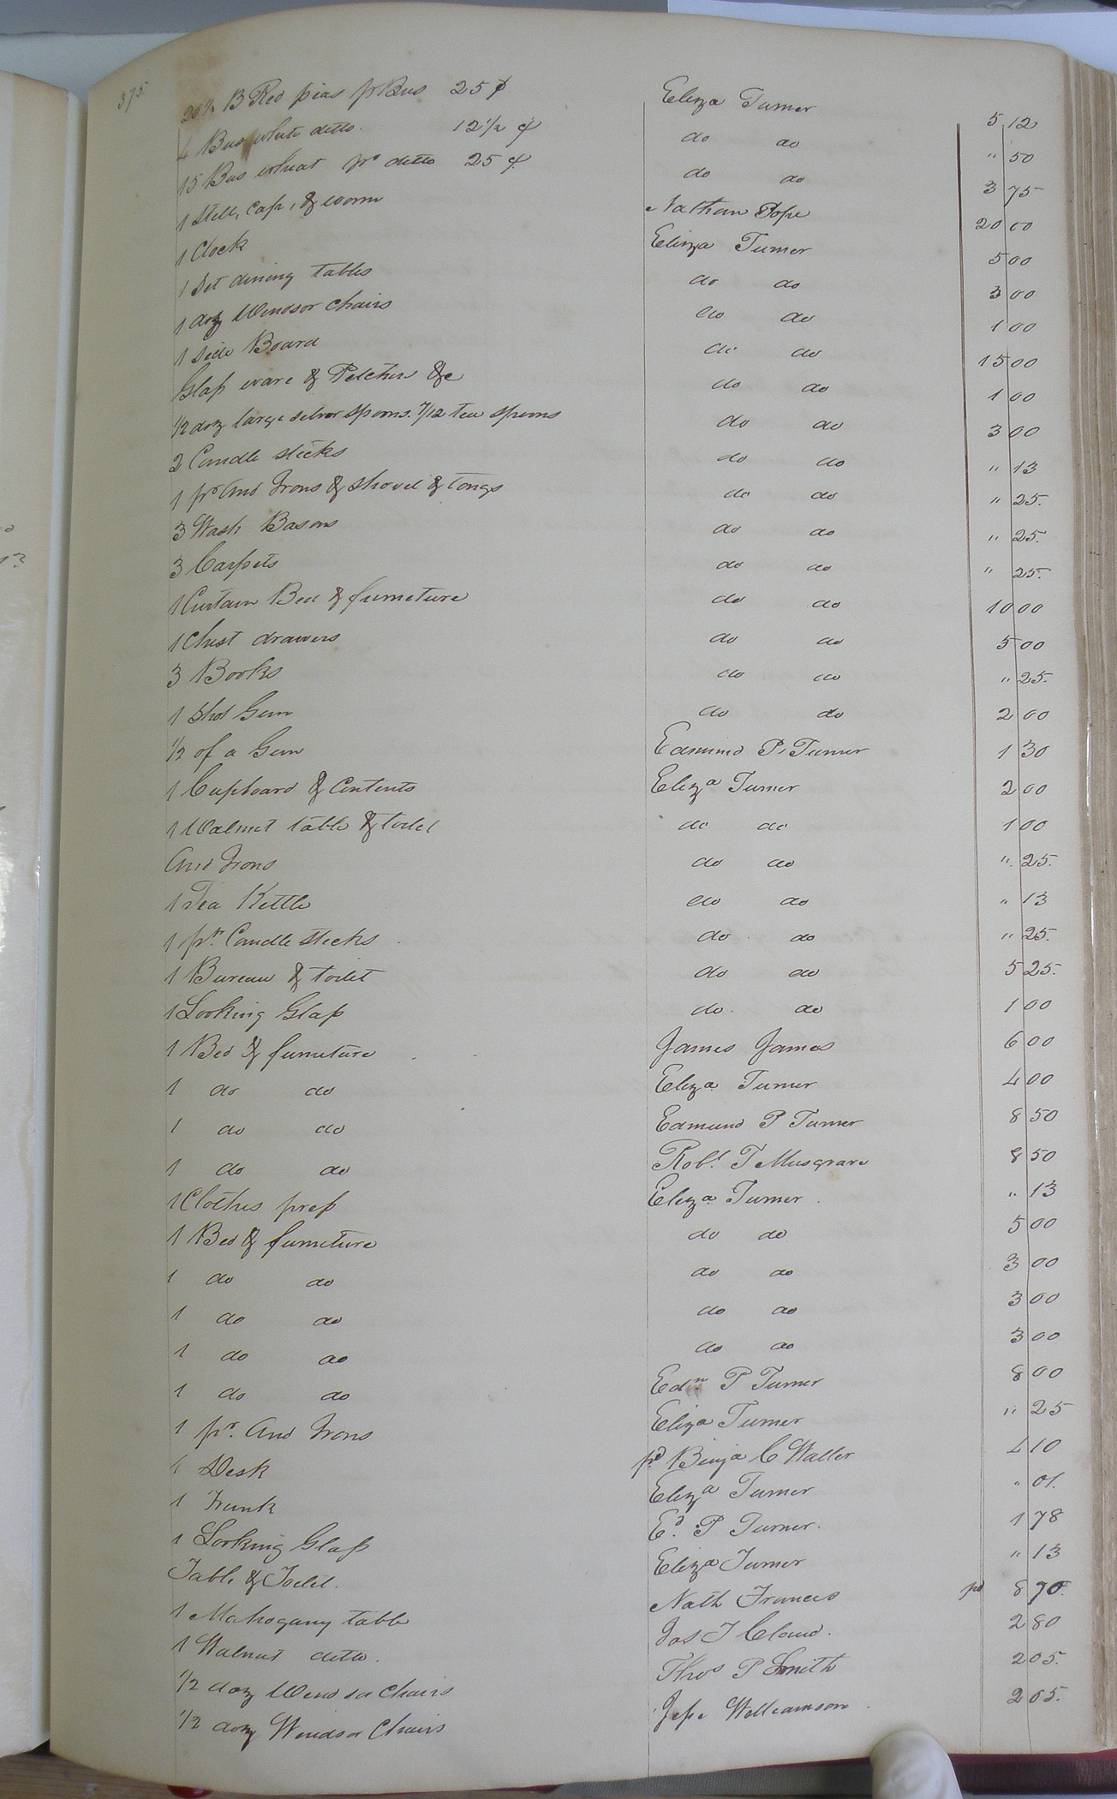 375
20½ B Red pias pr Bus 25 ¢ Eliza Turner 5 12
4 Bus white ditto. 12½ ¢ do do " 50
15 Bus wheat pr ditto 25 ¢ do do 3 75
1 Still, cap, & worm Nathan Pope 20 00
1 Clock Eliza Turner 5 00
1 Set dining tables do do 3 00
1 doz Windsor chairs do do 1 00
1 side Board do do 15 00
Glass ware & Pitchers &c do do 1 00
½ doz large silver spoons. 7/12 tea spoons do do 3 00
2 Candle sticks do do " 13
1 pr And Irons & shovel & tongs do do " 25.
3 Wash Basons do do " 25.
3 Carpets do do " 25.
1 Curtain Bed & furneture do do 10 00
1 Chest drawers do do 5 00
3 Books do do " 25.
1 Shot Gun do do 2 00
½ of a Gun Edmund P. Turner 1 30
1 Cupboard & Contents Eliza Turner 2 00
1 Walnut table & toilet do do 1 00
And Irons do do " 25.
1 Tea Kettle do do " 13
1 pr. Candle sticks do do " 25.
1 Bureau & toilet do do 5 25.
1 Looking Glass do. do 1 00
1 Bed & furneture James James 6 00
1 do do Eliza Turner 4 00
1 do do Edmund P Turner 8 50
1 do do Robt T Musgrave 8 50
1 Clothes press Eliza Turner. " 13
1 Bed & furneture do do 5 00
1 do do do do 3 00
1 do do do do 3 00
1 do do do do 3 00
1 do do Edm P Turner 8 00
1 pr. And Irons Eliza Turner " 25
1 Desk pd Binja C Waller 4 10
1 Trunk Eliza Turner " 01.
1 Looking Glass Ed. P Turner. 1 78
Table & Toilet. Eliza Turner " 13
1 Mahogany table Nath Francis pd 8 70.
1 Walnut ditto. Jas T Cloud. 2 80
½ doz Windsor Chairs Thos P Smith 2 05.
½ doz Windsor Chairs Jesse Williamson 2 05.